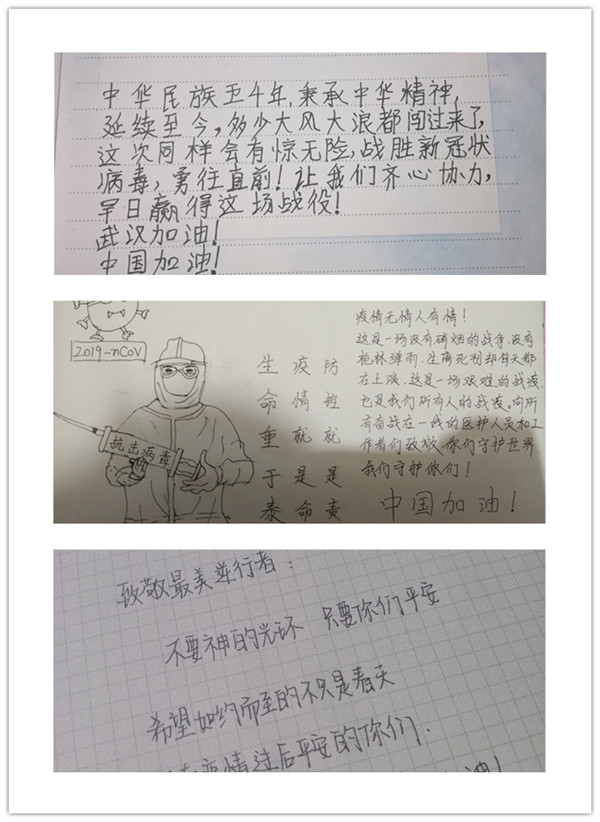 中华民族五千年,秉承中华精神,
延续至今,多少大风大浪都闯过来了,
这次同样会有惊无险,战胜新冠状
病毒,勇往直前!让我们齐心协力,
早日赢得这场战役!
武汉加油!
中国加油!
2019-nCoV
抗击病毒
生命重于泰
疫情就是命
防控就是责
疫情无情人有情!
这是一场没有硝烟的战争.没有
枪林弹雨.生离死别却每天都
在上演.这是一场艰难的战疫
也是我们所有人的战疫.向所
有奋战在一线的医护人员和工
作者们致敬.你们守护世界
我们守护你们!
中国加油!
致敬最美逆行者:
不要神的光环 只要你们平安
希望如约而至的不只是春天
疫情过后平安的你们.